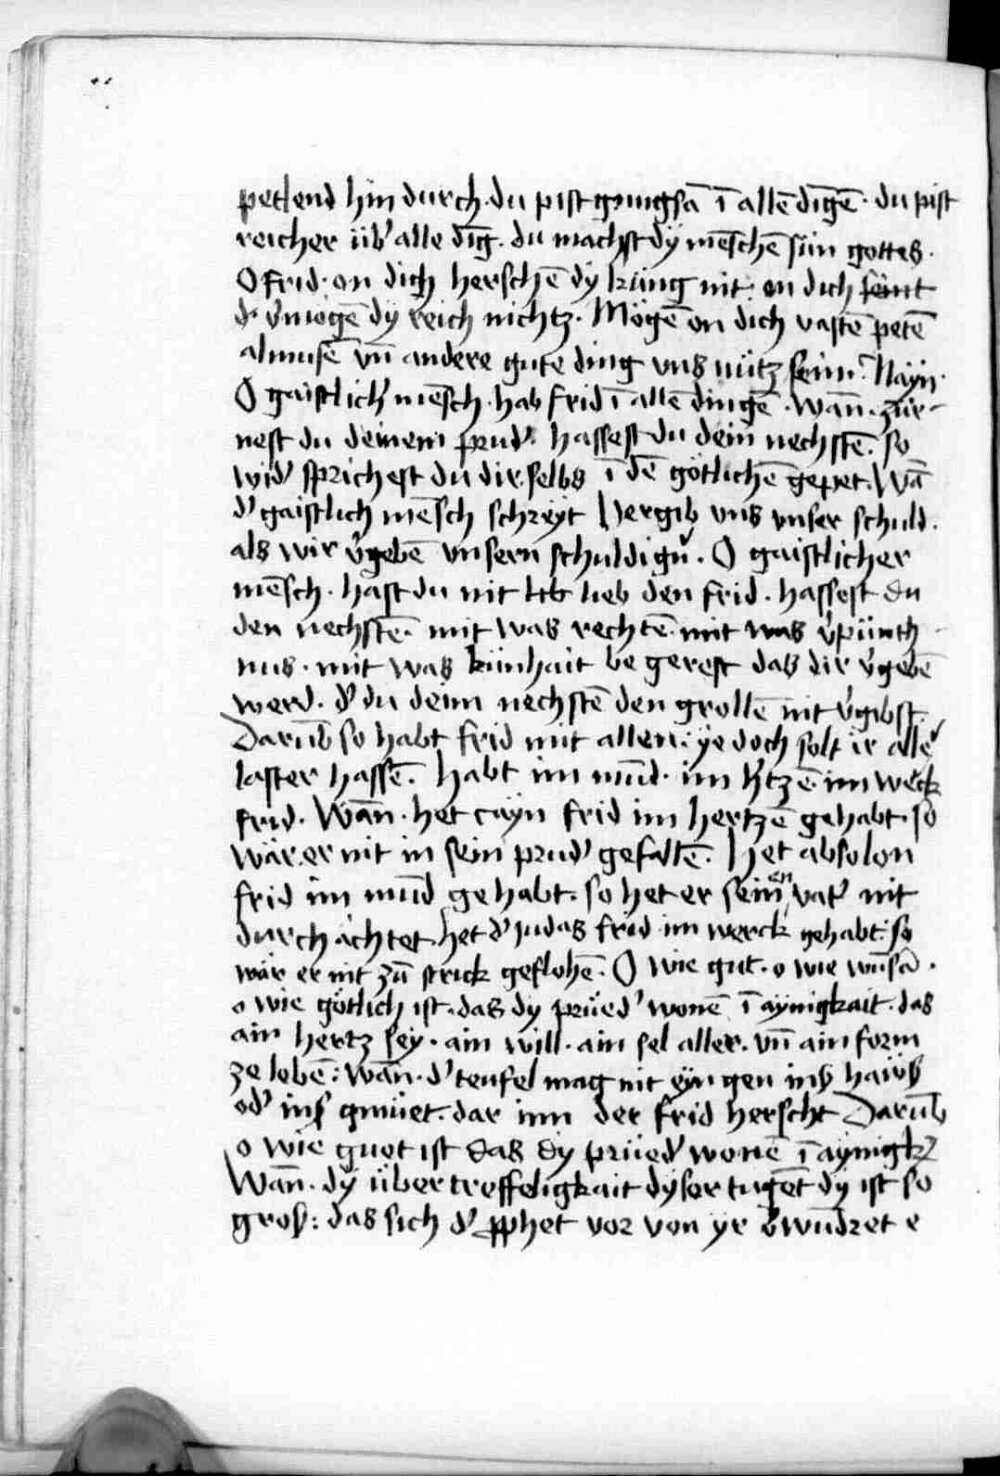 petlend hin durch · du pist gnungsā ī allē dīgē · du pist
reicher üb̛ alle dīg · du machst dÿ mēschē sün gottes ·
O frid · on dich herschē dÿ küng nit · on dich seint
d̛ v̛mögē dÿ reich nichtz · Mögē on dich vastē petē
almusē vn̄ andere gute ding vns nütz sein · Nayn ·
O gaistlich̛ mēsch · hab frid ī allē dingē · wān · zür-
nest du deinem prud̛ · hassest du dein nechstē · so
wid̛ sprichest du dir selbs ī dē götlichē gepet · Wā
d̛ gaistlich mēsch schreÿt Vergib vns vnser schuld ·
als wir v̛gebē vnsern schuldign̛ · O gaistlicher
mēsch · hast du nit lieb den frid · hassest du
den nechstē · mit was rechtē · mit was v̛pünth-
nus · mit was künhait be gerest das dir v̛gebē
werd · d̛ du deim nechstē den grollē nit v̛gibst ·
Darūb so habt frid mit allen · ÿe doch solt ir alle
laster hassē · habt im mūd · im h̛tzē · im werck
frid · Wān · het cayn frid im hertzē gehabt · so
wär er nit in sein prud̛ gefallē · Het absolon
frid im mūd ge habt · so het er seinen vat̛ nit
durch ächtet · het d̛ judas frid im werck gehabt · so
wär er nit zū strick geflohē · O wie gut · o wie wūsā ·
o wie götlich ist · das dÿ prüed̛ wonē ī aynigkait · das
ain hertz seÿ · ain will · ain sel aller · vn̄ ain form
ze lebē : wān · d̛ teufel mag nit eÿn gen inß hawß
od̛ inß gmüet · dar inn der frid herscht Darūb
o wie guot ist das dÿ prüed̛ wonē ī aynigkz
Wān · dÿ übertreffeligkait dÿser tugēt dÿ ist so
groß : das sich d̛ ꝓphet vor von ÿr v̛wūdret e